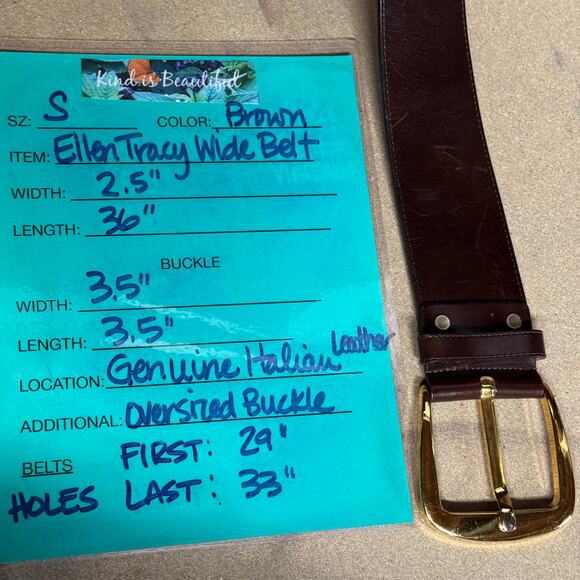 Kind is Beautiful
SZ: S COLOR: Brown
ITEM: Ellen Tracy Wide Belt
WIDTH: 2.5"
LENGTH: 36"
BUCKLE
WIDTH: 3.5"
LENGTH: 3.5"
LOCATION: Genuine Italian Leather
ADDITIONAL: Oversized Buckle
BELTS FIRST: 29"
HOLES LAST: 33"